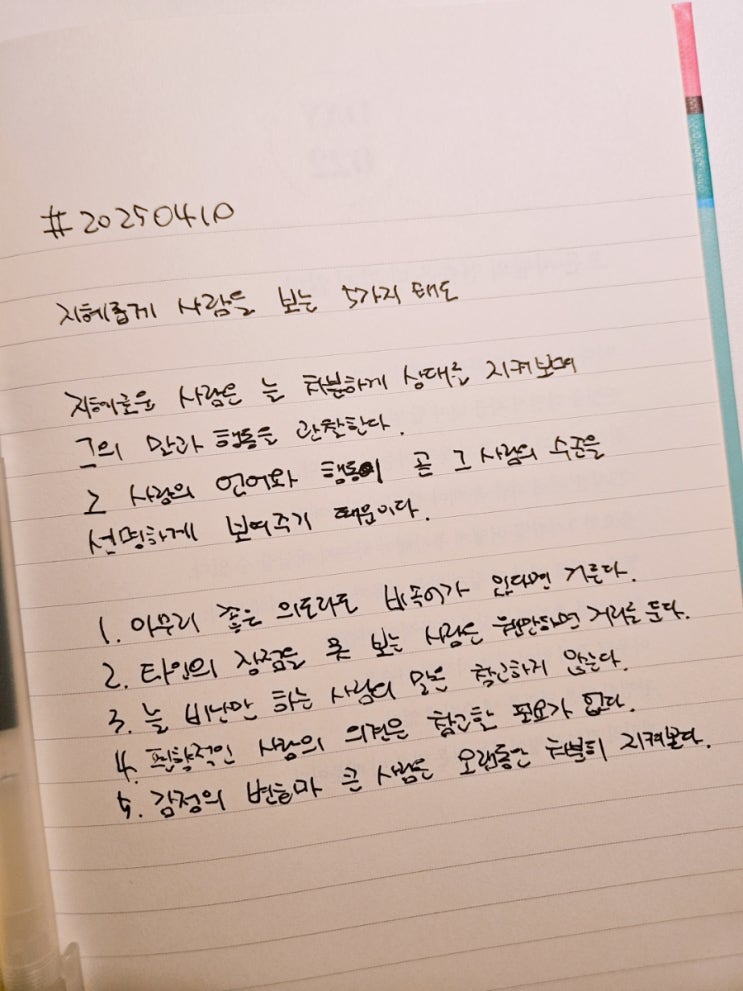 #20250410
지혜롭게 사람을 보는 5가지 태도
지혜로운 사람은 늘 차분하게 상대를 지켜보며
그의 말과 행동을 관찰한다.
그 사람의 언어와 행동이 곧 그 사람의 수준을
선명하게 보여주기 때문이다.
1. 아무리 좋은 의도라도 비속어가 있다면 거른다.
2. 타인의 장점을 못 보는 사람은 웬만하면 거리를 둔다.
3. 늘 비난만 하는 사람의 말은 참고하지 않는다.
4. 편향적인 사람의 의견은 참고할 필요가 없다.
5. 감정의 변화가 큰 사람은 오랫동안 차분히 지켜본다.